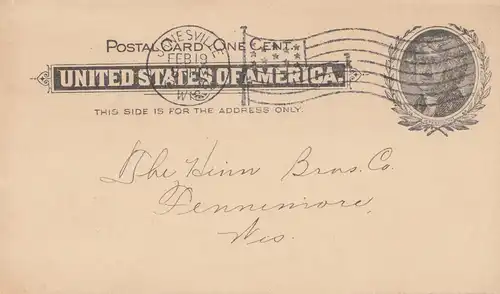 POSTAL CARD - ONE CENT.
JANESVILLE
FEB 19
WIS.
UNITED STATES OF AMERICA.
THIS SIDE IS FOR THE ADDRESS ONLY.
The Hinn Bros. Co.
Fennimore,
Wis.